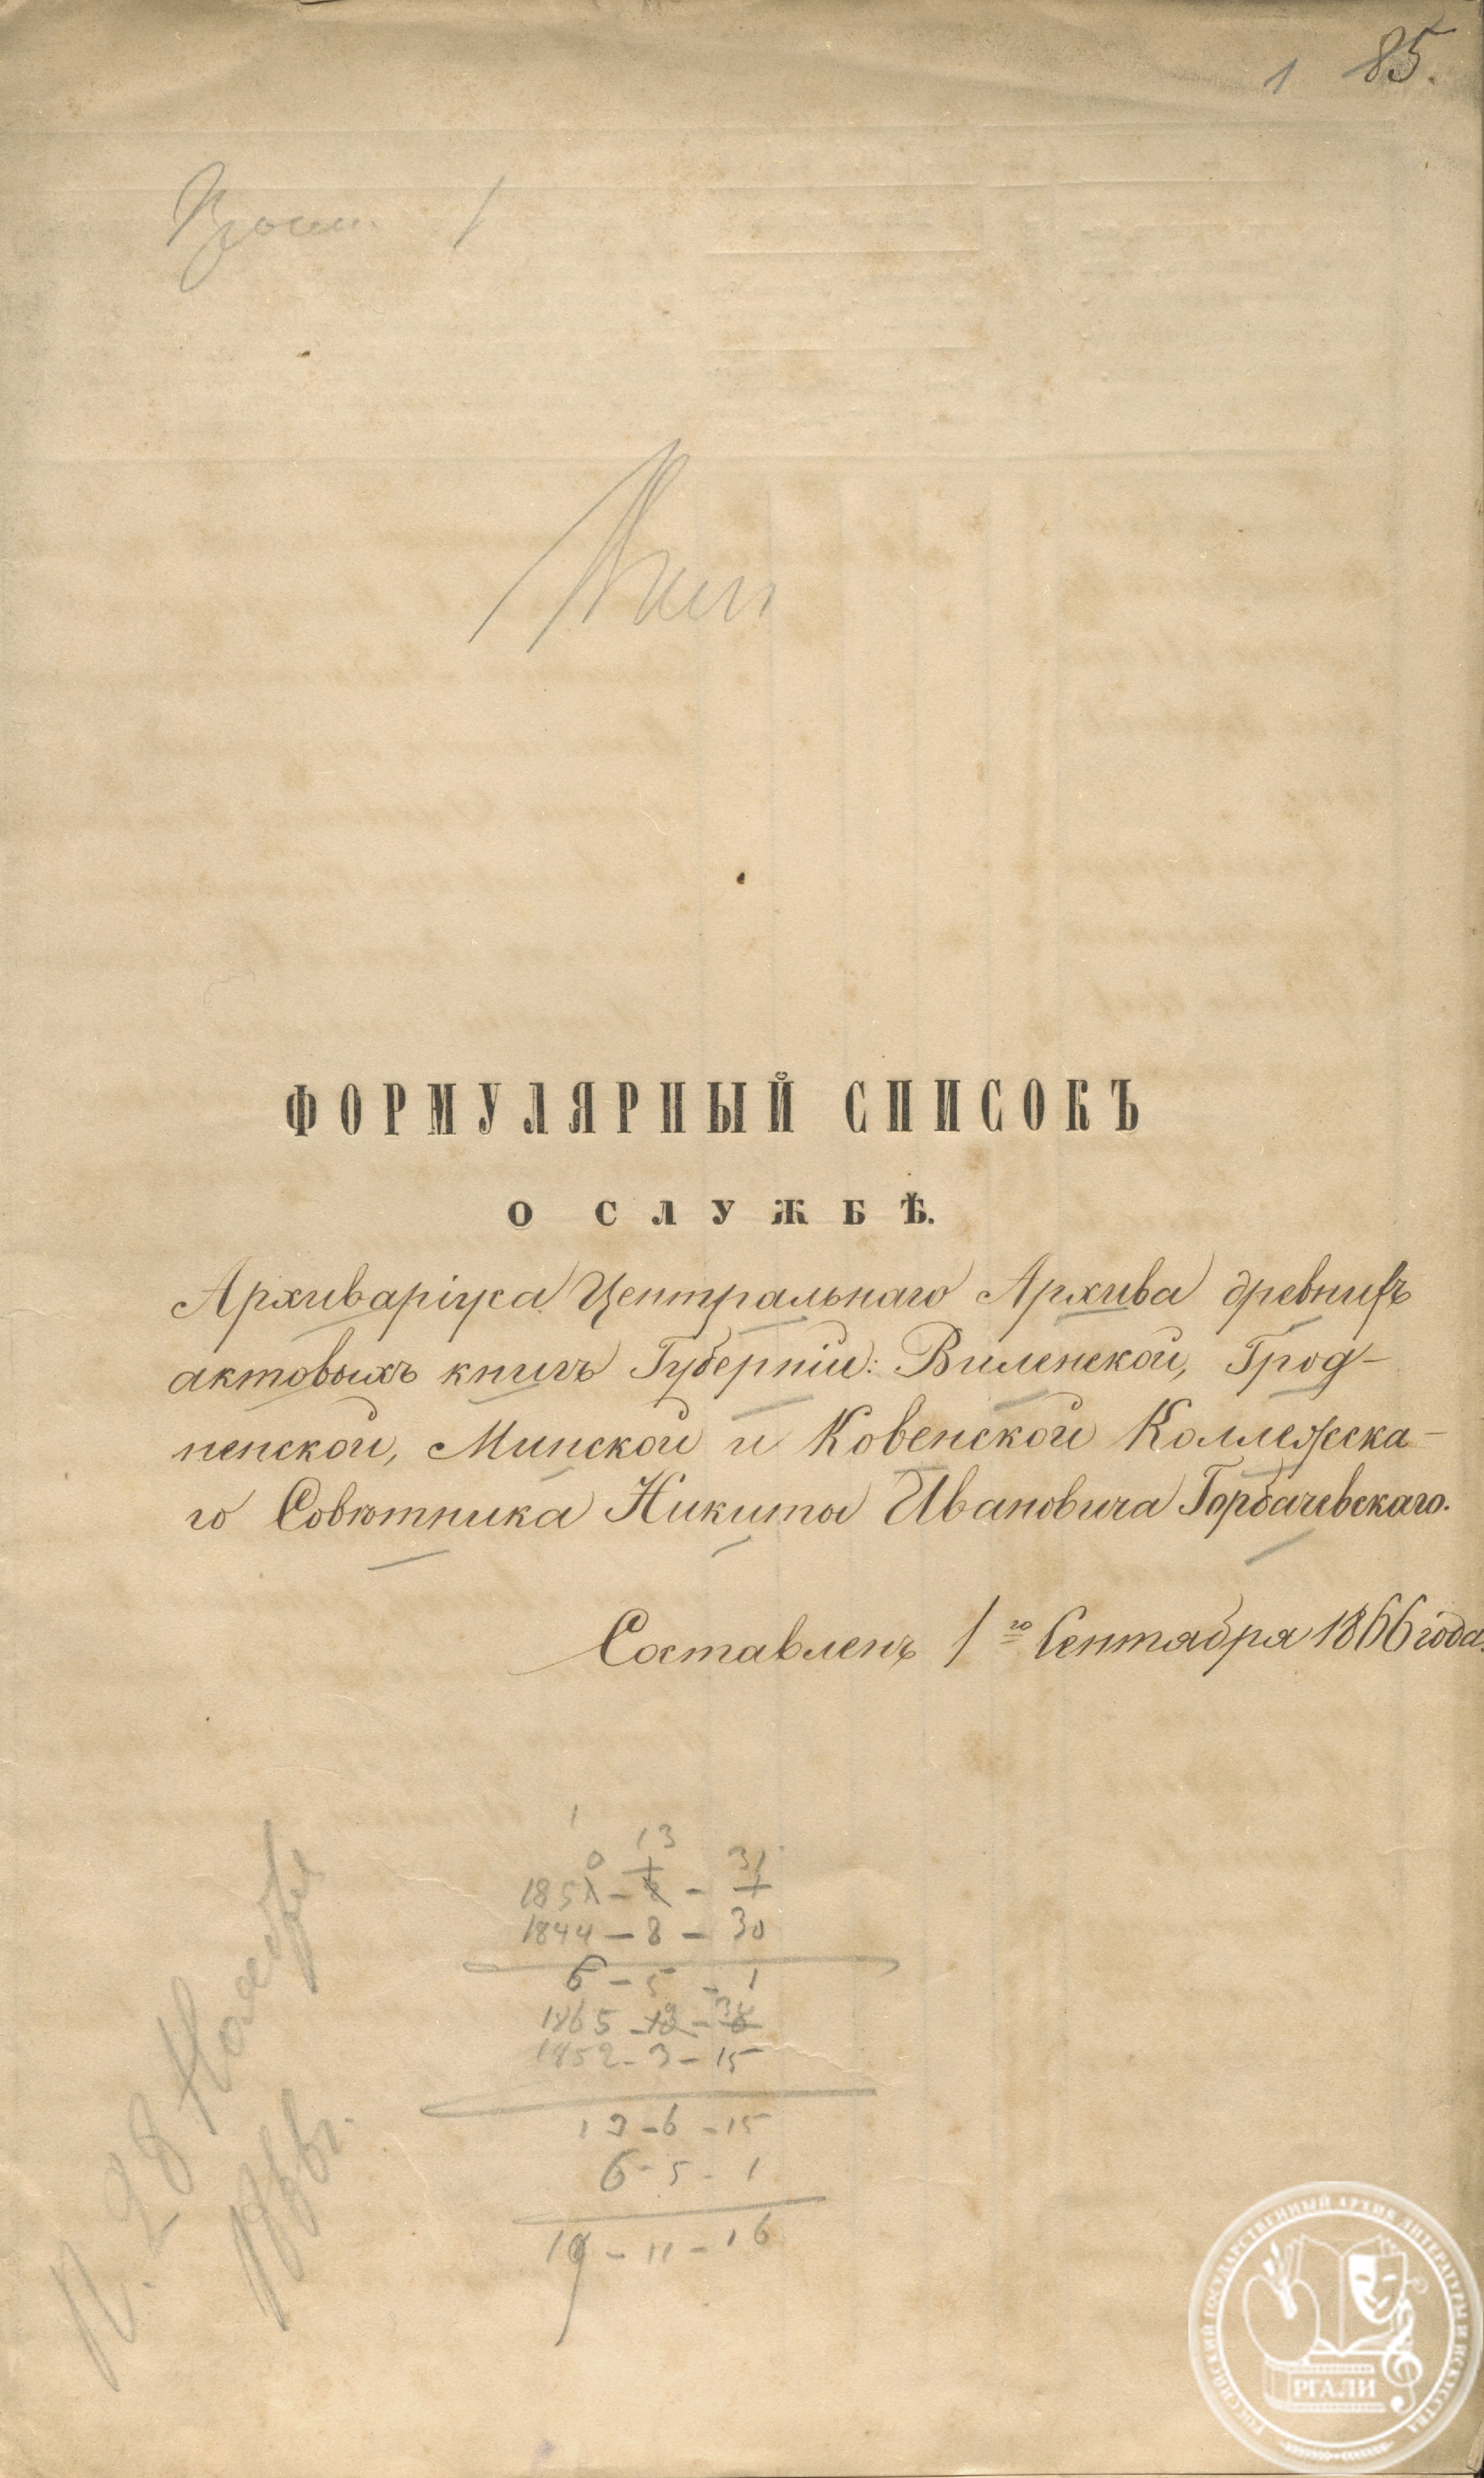 1 85.
1
ФОРМУЛЯРНЫЙ СПИСОКЪ
О СЛУЖБѢ.
Архиваріуса Центральнаго Архива древнихъ
актовыхъ книгъ Губерній: Виленской, Грод-
ненской, Минской и Ковенской Коллежска-
го Совѣтника Никиты Ивановича Горбачевскаго.
Составленъ 1го Сентября 1866 года.
1
0 13 31
1851 – 2 – 1
1844 – 8 – 30
6 – 5 – 1
1865
1852 – 3 – 15
13 – 6 – 15
6 – 5 – 1
19 – 11 – 16
28 Ноября
1866 г.
РОССИЙСКИЙ ГОСУДАРСТВЕННЫЙ АРХИВ ЛИТЕРАТУРЫ И ИСКУССТВА
РГАЛИ